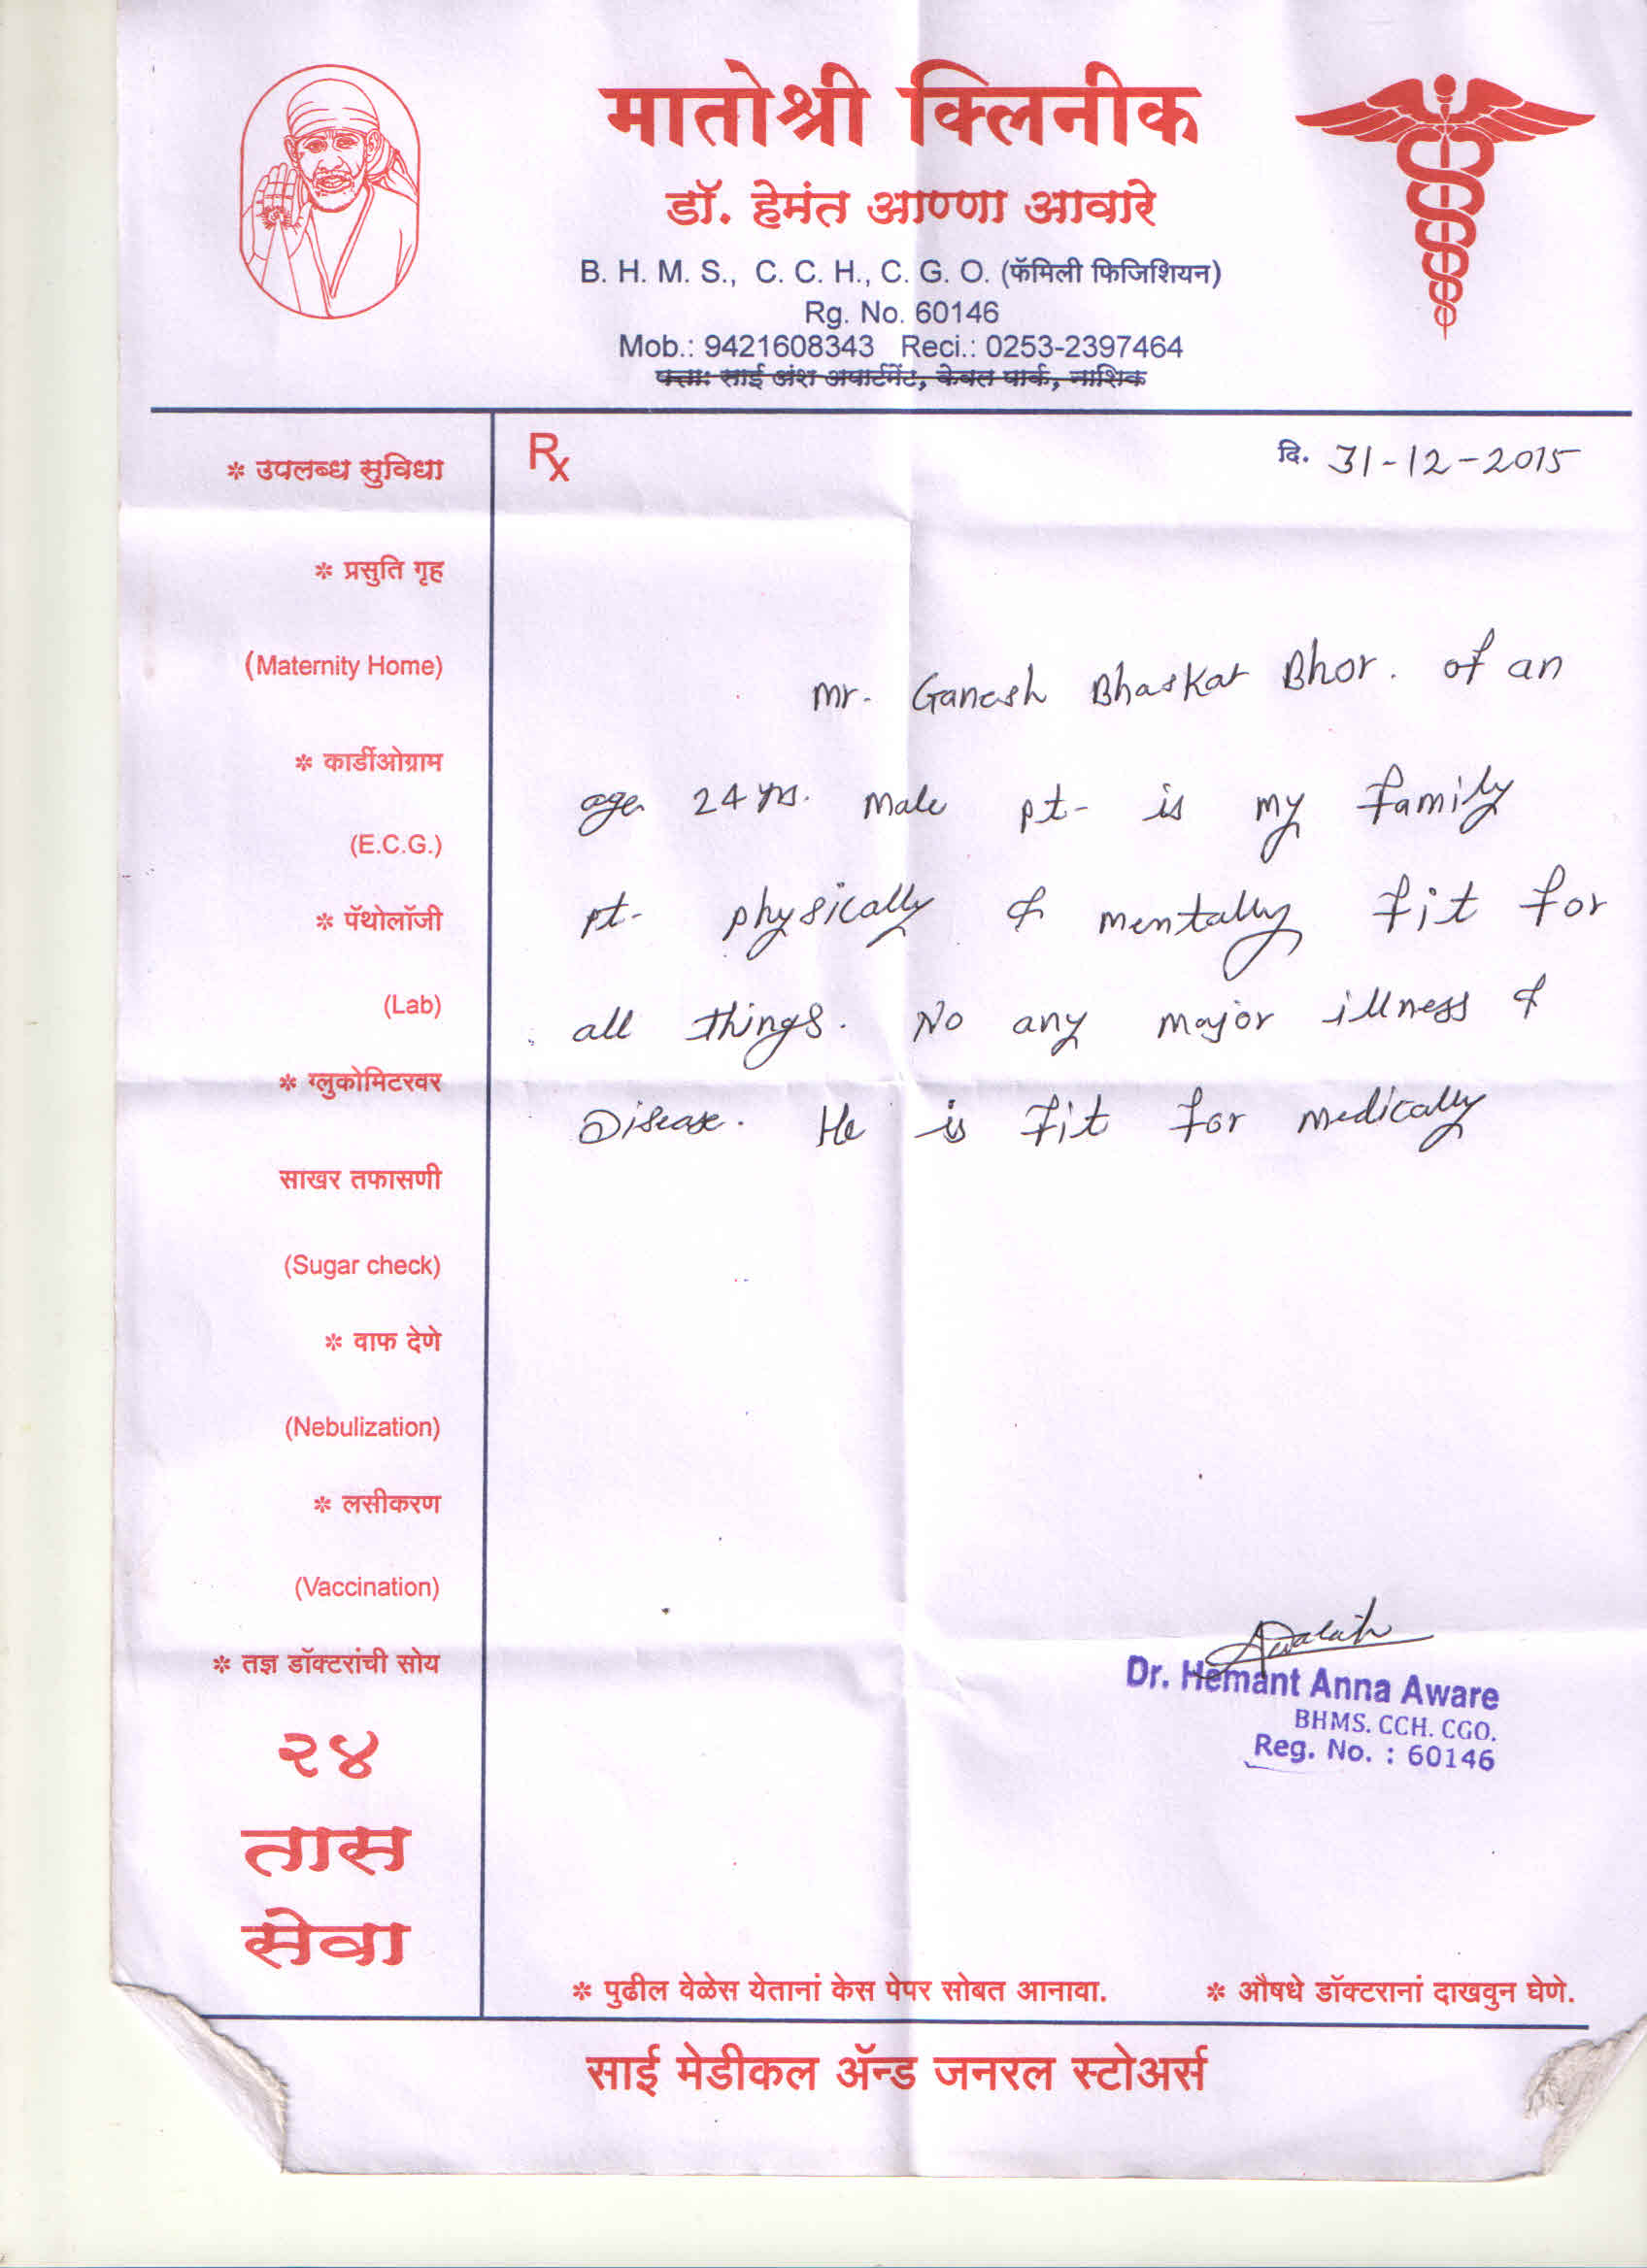 मातोश्री क्लिनीक
डॉ. हेमंत आण्णा आवारे
B. H. M. S., C. C. H., C. G. O. (फॅमिली फिजिशियन)
Rg. No. 60146
Mob.: 9421608343 Reci.: 0253-2397464
पत्ता: साई अंश अपार्टमेंट, केवल पार्क, नाशिक
Rx
दि. 31-12-2015
* उपलब्ध सुविधा
* प्रसुति गृह
(Maternity Home)
* कार्डीओग्राम
(E.C.G.)
* पॅथोलॉजी
(Lab)
* ग्लुकोमिटरवर
साखर तफासणी
(Sugar check)
* वाफ देणे
(Nebulization)
* लसीकरण
(Vaccination)
* तज्ञ डॉक्टरांची सोय
२४
तास
सेवा
Mr. Ganesh Bhaskar Bhor. of an
age 24 yrs. male pt- is my family
pt- physically & mentally fit for
all things. No any major illness &
Disease. He is fit for medically
Dr. Hemant Anna Aware
BHMS. CCH. CGO.
Reg. No. : 60146
* पुढील वेळेस येतानां केस पेपर सोबत आनावा. * औषधे डॉक्टरानां दाखवुन घेणे.
साई मेडीकल ॲन्ड जनरल स्टोअर्स